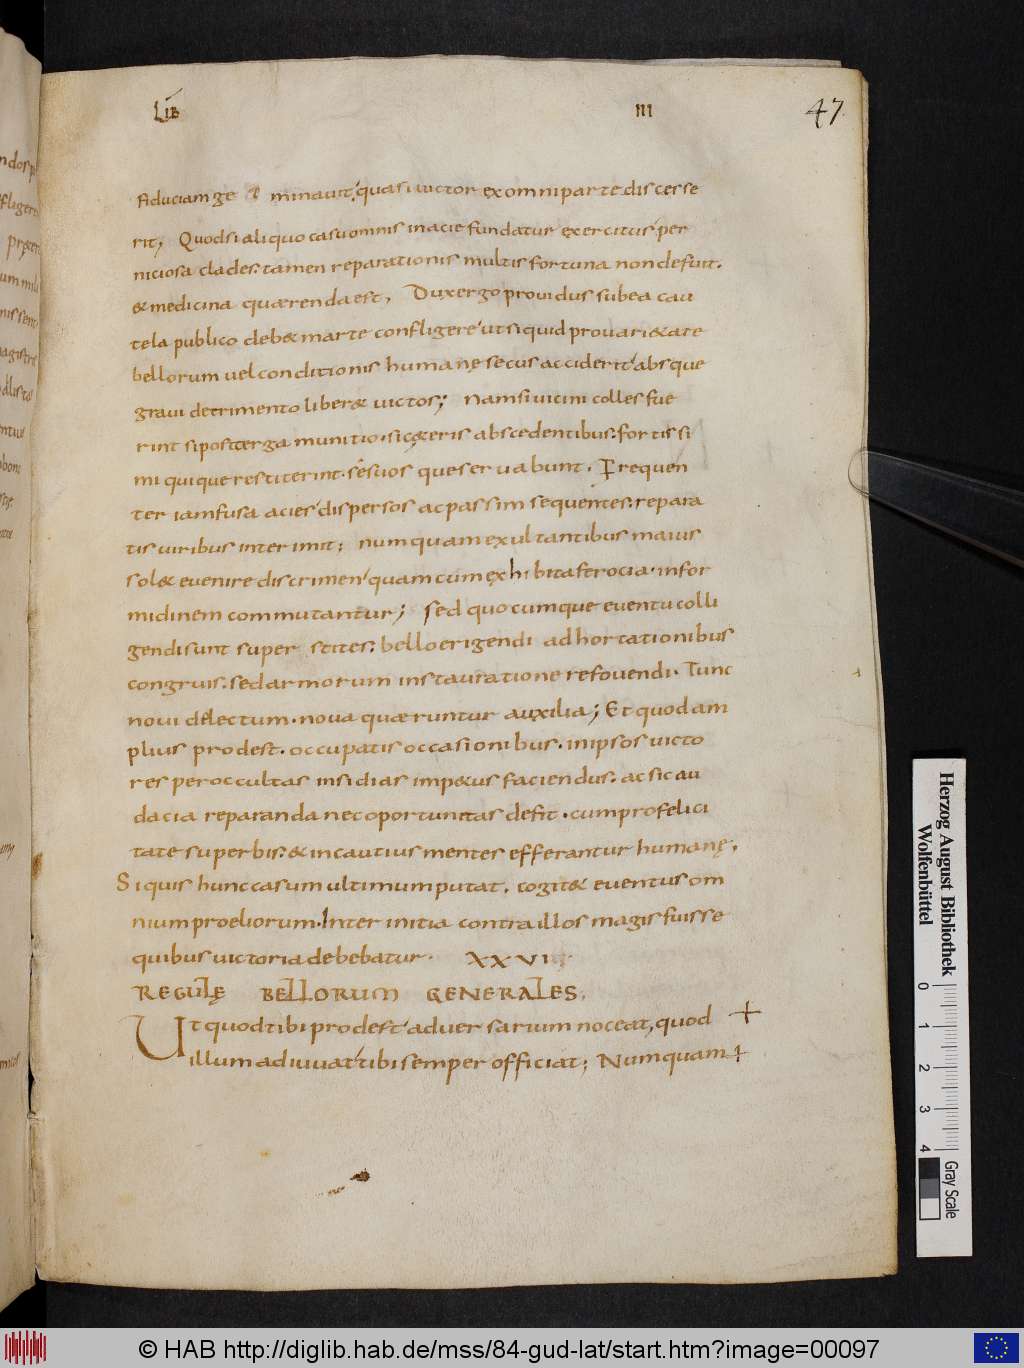 LIB III 47
fiduciam ge & minauit. quasi uictor ex omni parte discesse
rit; Quodsi aliquo casu omnis in acie fundatur exercitus per
niciosa clades. tamen reparationis multis fortuna non defuit.
& medicina quaerenda est. Dux ergo prouidus sub ea cau
tela publico deb& marte confligere ut siquid pro uari&ate
bellorum uel conditionis humanę secus acciderit absque
graui detrimento liber& uictos; Nam si uicini colles fue
rint si post terga munitio. si cęteris abscedentibus. fortissi
mi quique restiterint. se suos que seruabunt. Frequen
ter iam fusa acies dispersos ac passim sequentes. repara
tis uiribus interimit; numquam exultantibus maius
sol& euenire discrimen quam cum ex hibita ferocia. in for
midinem commutantur; sed quocumque euentu colli
gendi sunt super stites. bello erigendi adhortationibus
congruis. sed armorum instauratione refouendi. Tunc
noui delectum. noua quaeruntur auxilia; Et quod am
plius prodest. occupatis occasionibus. in ipsos uicto
res per occultas insidias imp&us faciendus. ac sic au
dacia reparanda nec oportunitas defit. cum pro felici
tate superbis. & incautius mentes efferantur humanę.
Siquis hunc casum ultimum putat. cogit& euentus om
nium proeliorum. Inter initia contra illos magis fuisse
quibus uictoria debebatur. XXVI
REGULĘ BELLORUM GENERALES.
Ut quod tibi prodest aduersarium noceat, quod
illum adiuuat tibi semper officiat; Numquam
Herzog August Bibliothek
Wolfenbüttel
0 1 2 3 4
Gray Scale
© HAB http://diglib.hab.de/mss/84-gud-lat/start.htm?image=00097